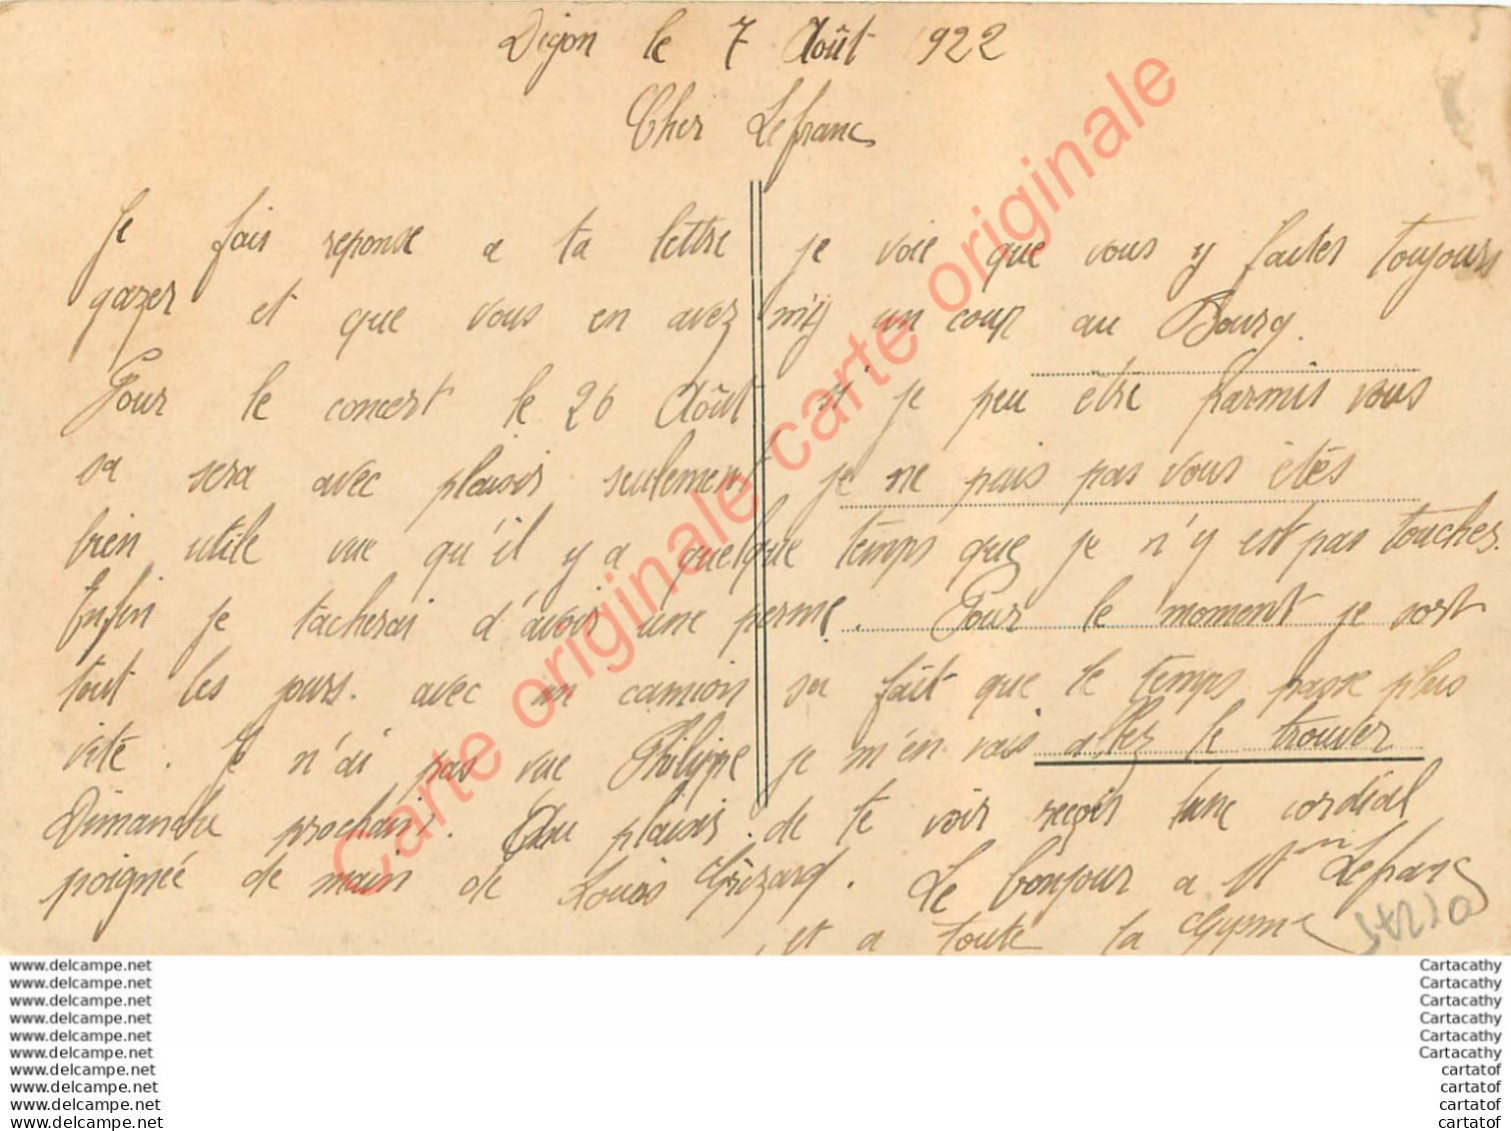 Dijon le 7 Août 1922
Cher Lefranc
Je fais reponse a ta lettre je voie que vous y faites toujours
gazer et que vous en avez m'y un coup au Bourg.
Pour le concert le 26 Août si je peu être parmis vous
sa sera avec plaisir seulement je ne puis pas vous êtés
bien utile vue qu'il y a quelque temps que je n'y est pas touches.
Enfin je tacherai d'avoir une perme. Pour le moment je sort
tout les jours. avec un camion sa fait que le temps passe plus
vite. Je n'ai pas vue Philippe je m'en vais allez le trouver
Dimanche prochain. Au plaisir de te voir reçois une cordial
poignée de main de Louis Grizard. Le bonjour a Mme Lefranc
et a toute la Gymne
Carte originale carte originale
www.delcampe.net Cartacathy
www.delcampe.net Cartacathy
www.delcampe.net Cartacathy
www.delcampe.net Cartacathy
www.delcampe.net Cartacathy
www.delcampe.net Cartacathy
www.delcampe.net cartatof
www.delcampe.net cartatof
www.delcampe.net cartatof
www.delcampe.net cartatof